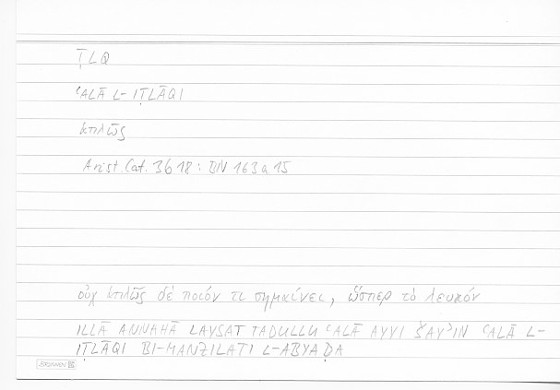 ṬLQ
ʿALĀ L-IṬLĀQI
ἁπλῶς
Arist. Cat. 3b18: BN 163a15
οὐχ ἁπλῶς δὲ ποιόν τι σημαίνει, ὥσπερ τὸ λευκόν
ILLĀ ANNAHĀ LAYSAT TADULLU ʿALĀ AYYI ŠAYʾIN ʿALĀ L-
IṬLĀQI BI-MANZILATI L-ABYAḌA